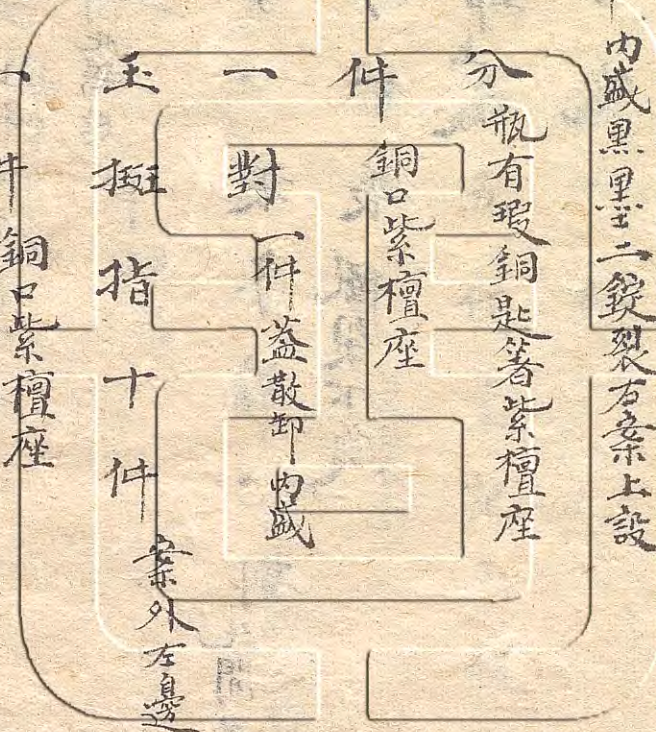 內盛黑墨二錠裂右案上設
分 瓶有瑕銅匙箸紫檀座
件 銅口紫檀座
一對 一件蓋散卸內盛
玉搬指十件 案外左邊
件 銅口紫檀座